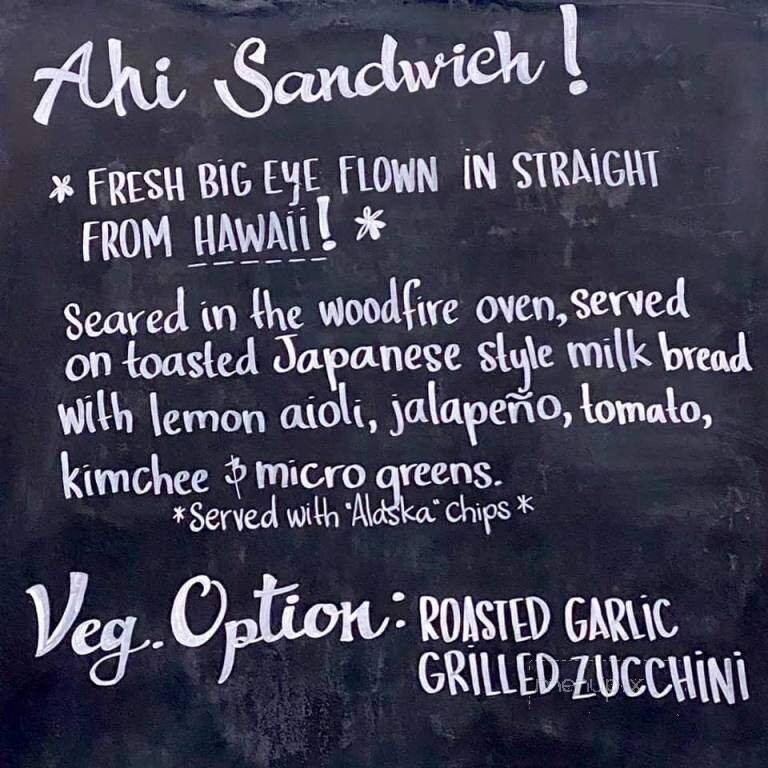 Ahi Sandwich!
* FRESH BIG EYE FLOWN IN STRAIGHT
FROM HAWAII! *
Seared in the woodfire oven, served
on toasted Japanese style milk bread
with lemon aioli, jalapeño, tomato,
kimchee & micro greens.
*Served with "Alaska" chips*
Veg. Option: ROASTED GARLIC
GRILLED ZUCCHINI